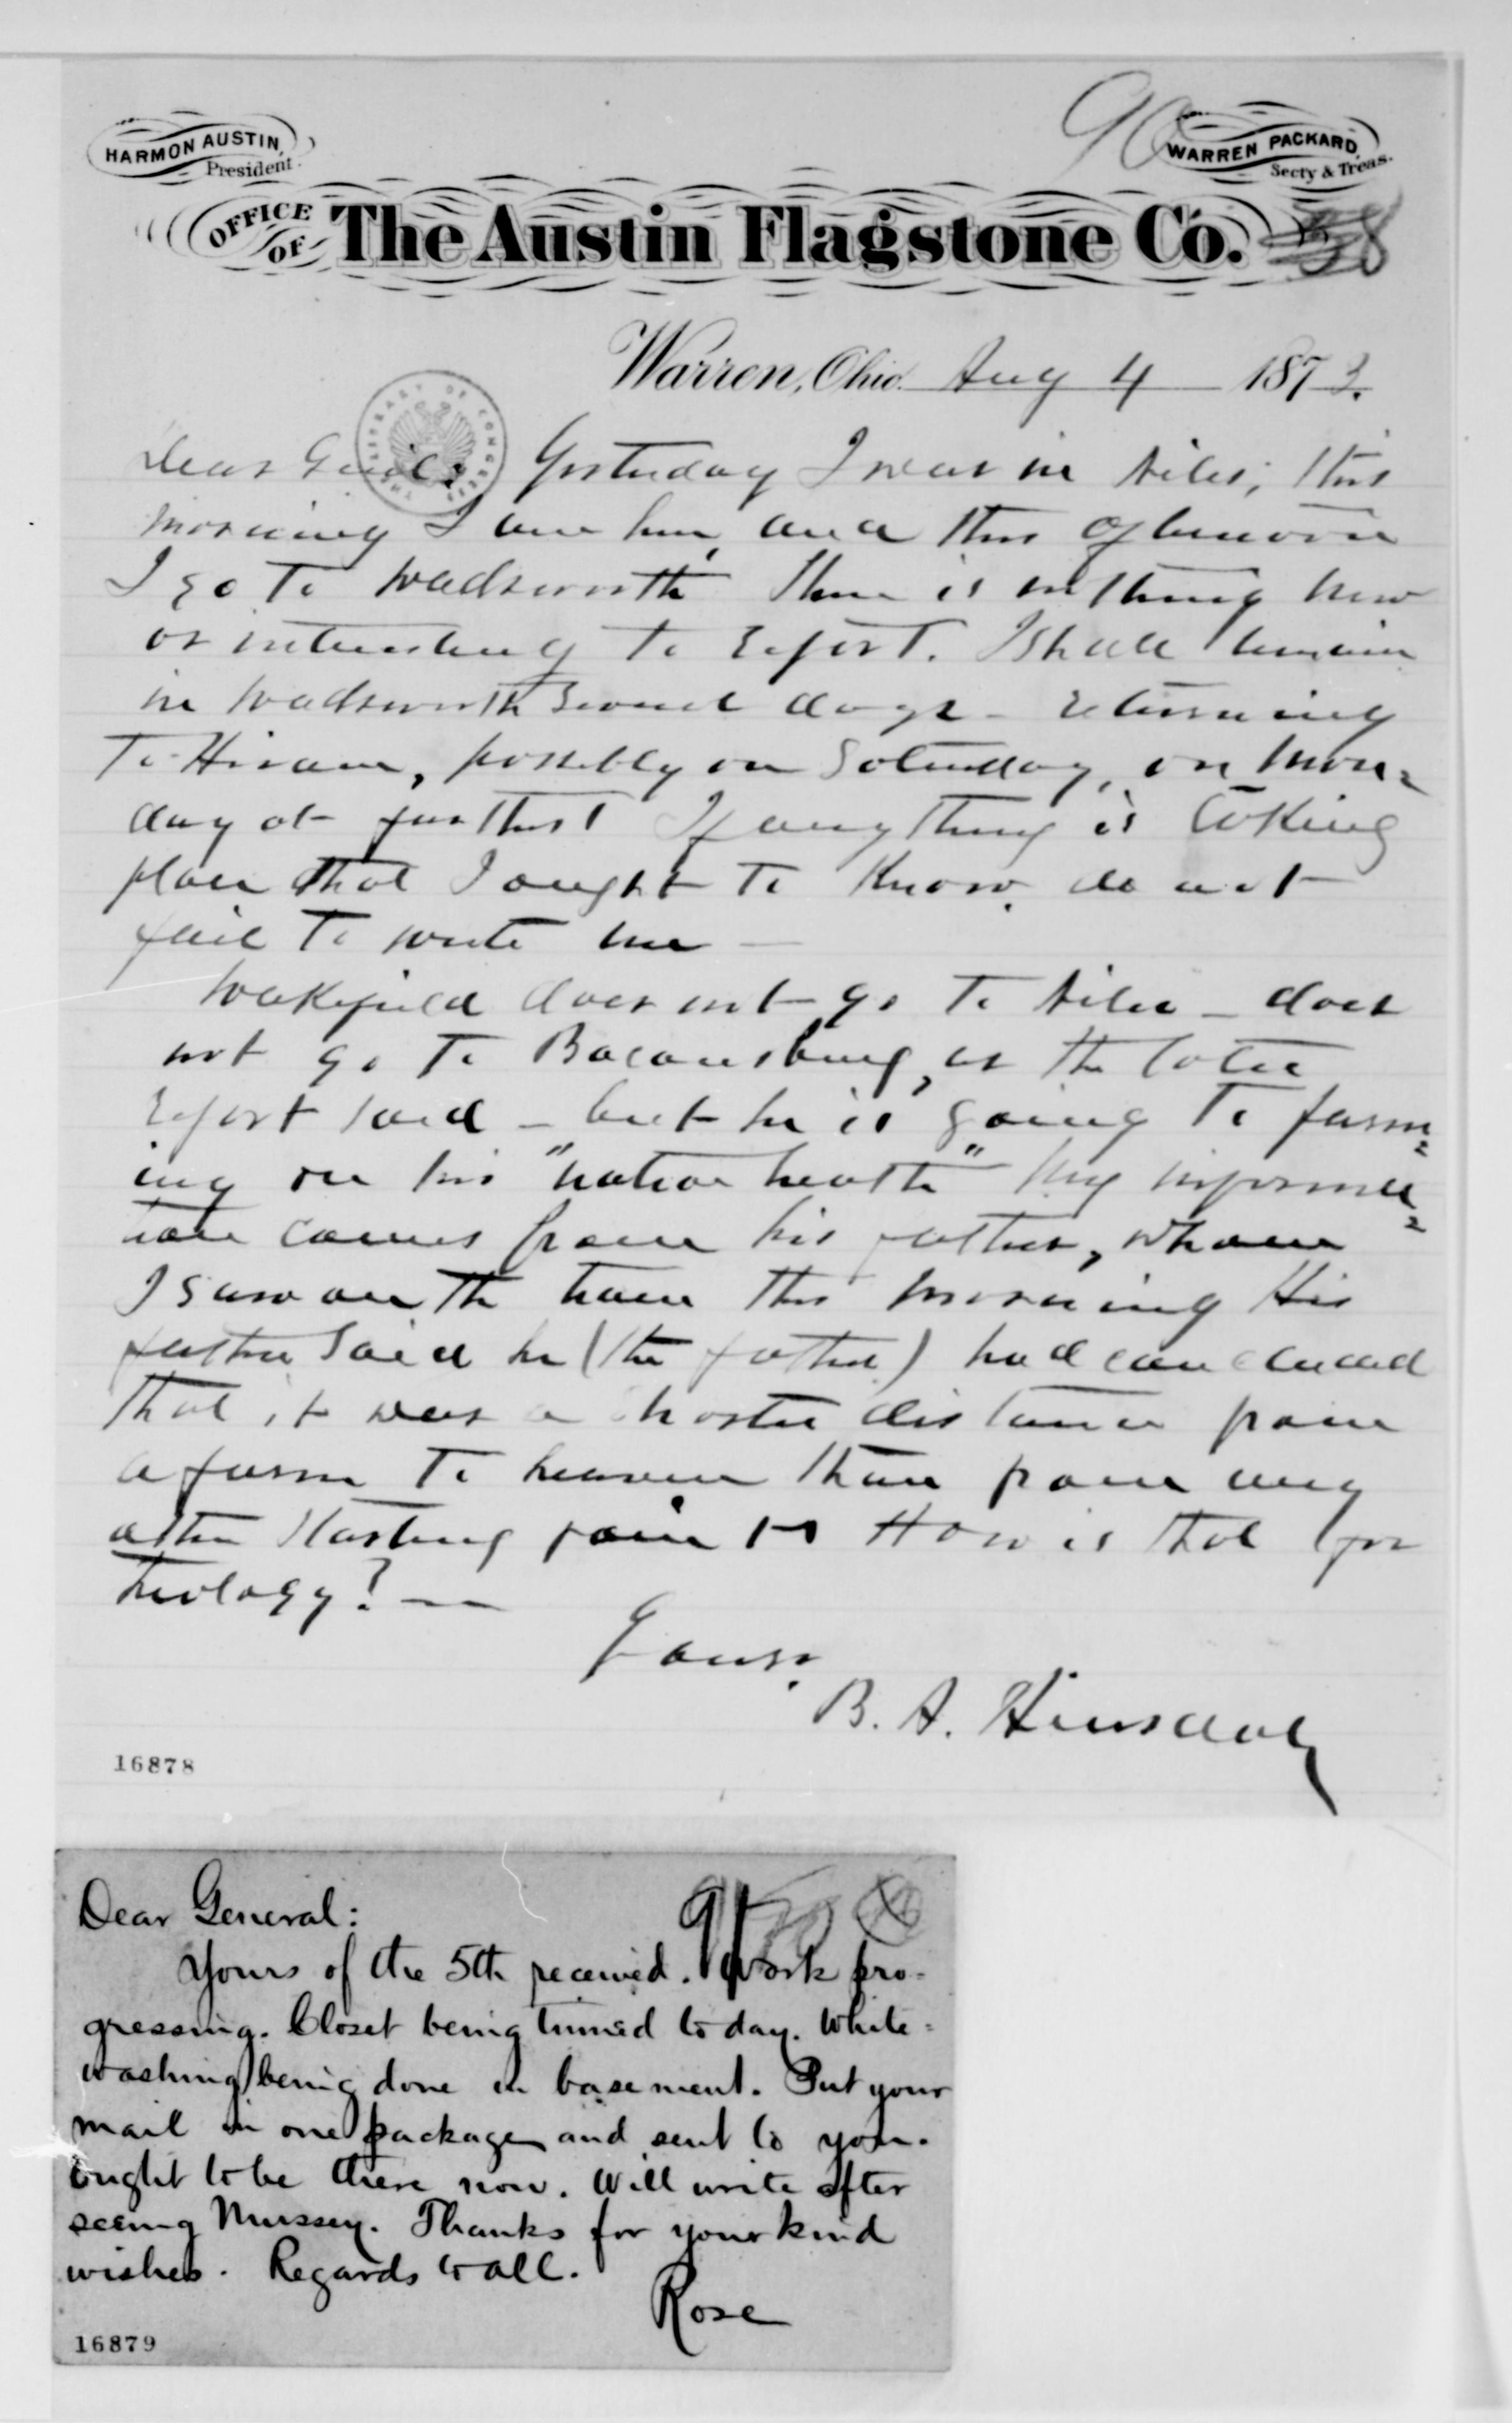 90
HARMON AUSTIN,
President.
WARREN PACKARD,
Secty & Treas.
OFFICE
OF
The Austin Flagstone Co.
Warren, Ohio. Aug 4 1873.
LIBRARY OF CONGRESS
Dear Genl: Yesterday I was in Niles; this
morning I am here, and this afternoon
I go to Wadsworth There is nothing new
or interesting to report. I shall remain
in Wadsworth several days - returning
to Hiram, possibly on Saturday, on Mon=
day at furthest If anything is taking
place that I ought to know, do not
fail to write me —
Wakefield does not go to Niles - does
not go to Baconsburg, as the late
report said - but he is going to farm=
ing on his "native heath" My informa=
tion comes from his father, whom
I saw on the train this morning His
father said he (the father) had concluded
that it was a shorter distance from
a farm to heaven than from any
other starting point How is that for
theology? —
Yours,
B. A. Hinsdale
16878
Dear General: 91
Yours of the 5th received. Work pro-
gressing. Closet being tinned to day. White=
washing being done in basement. Put your
mail in one package and sent to you.
Ought to be there now. Will write after
seeing Mussey. Thanks for your kind
wishes. Regards to all.
Rose
16879